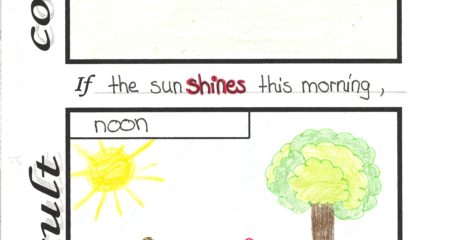 co
If the sun shines this morning,
noon
ult